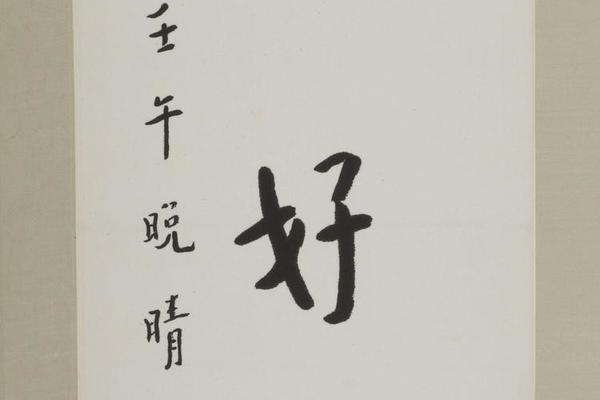 好
壬午晚晴